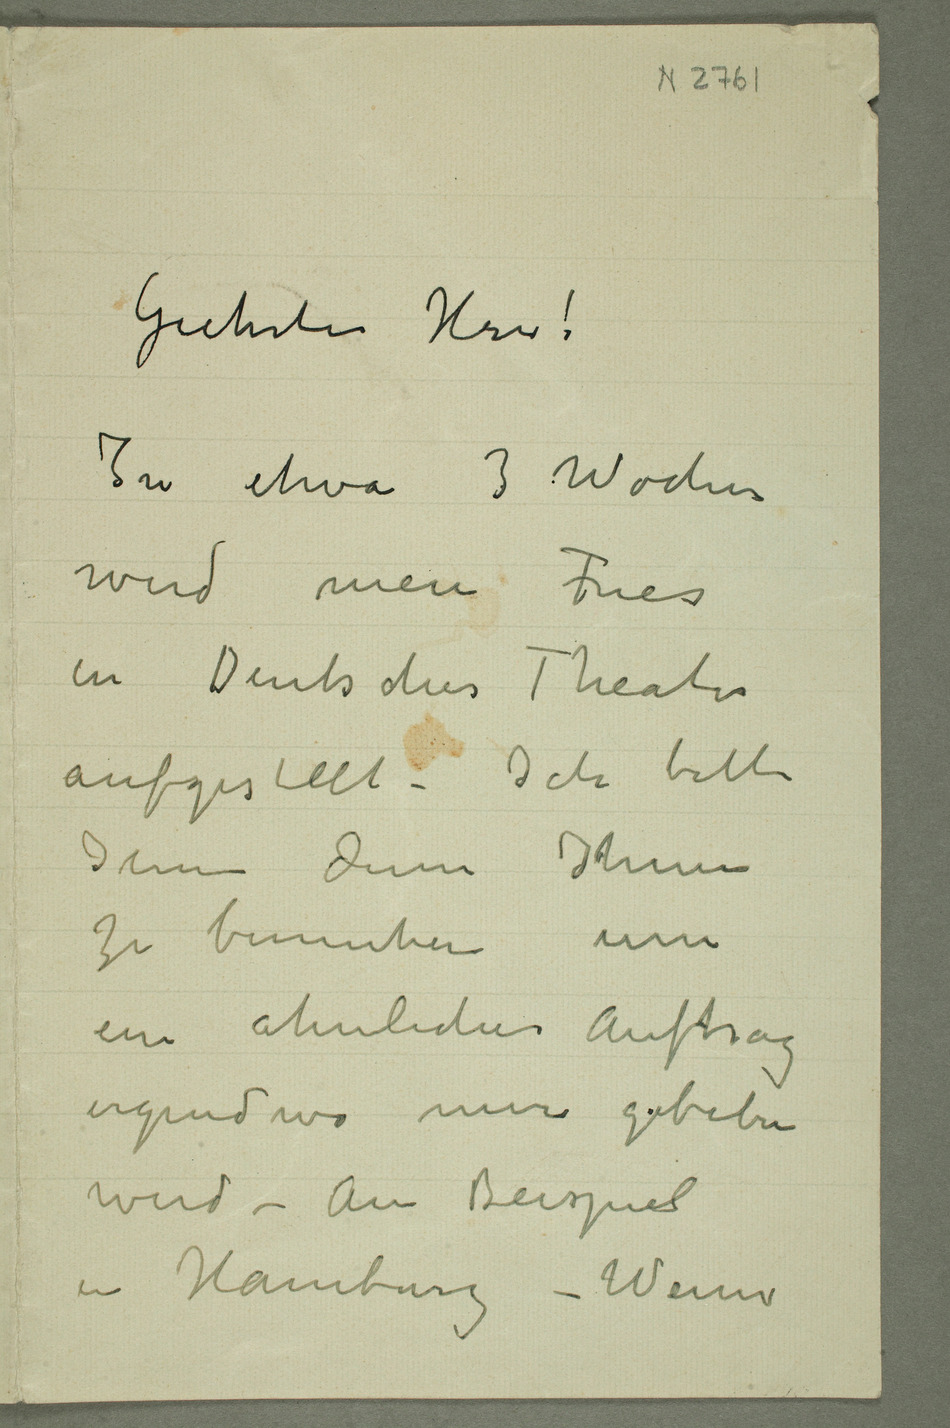 N 2761
Geehrter Herr!
In etwa 3 Wochen
wird mein Fries
in Deutsches Theater
aufgestellt – Ich bitte
Ihnen
zu bemuhen um
ein ahnliches Auftrag
irgendwo mir
wird – Am Beispiel
in Hamburg – Wenn